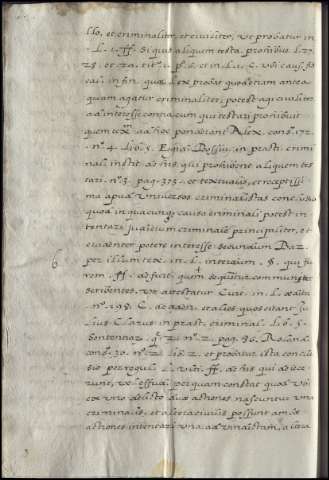 llo, et criminaliter, et civiliter, ut probatur in
L. 1. ff. Si quis aliquem testa. prohibue. l. 27.
25. et 29. tit. 1. p. 6. et in L. 1. C. ubi caus. fis
cal. in fin. quae lex probat quod etiam antea
quam agatur criminaliter, potest agi civiliter
ad interesse contra eum qui testari prohibuit
quem tex. ad hoc ponderant Alex. cons. 172.
nº. 4. lib. 5. Egidi. Bossiu. in practi. crimi
nali. in tit. de his qui prohibent aliquem tes
tari nº. 3. pag. 373. et textualis, et receptissi
ma apud universos criminalistas conclusio
quod in quacunque causa criminali potest in
tentari judicium criminale principaliter, et
evidenter petere interesse secundum Bar.
per illum tex. in L. interdum. §. qui fu
rem. ff. de furt. quem sequuntur communiter
scribentes, ut attestatur in L.
6
nº. 198. C. de et alios quos citant Ju
lius Clarus in pract. criminal. lib. 5.
Sententiar. q. 2. nº. 2. pag. 86. Roland.
cons. 30. nº. 22. lib. 2. et probatur ista conclu
sio per regul. L. ff. de his qui dejece
runt, vel effud. per quam constat quod
ex uno delicto duae actiones nascuntur una
criminalis, et altera civilis possunt ambae
actiones intentari una ad vindictam, altera